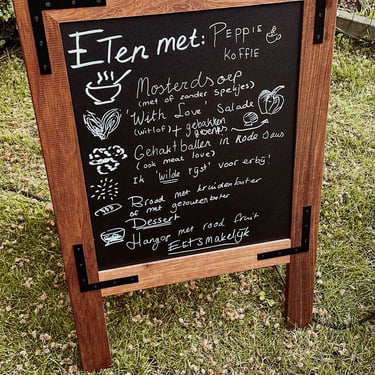 ETen met: PEPPIE &
KOFFIE
Mosterdsoep
(met of zonder spekjes)
'With Love' Salade
(witlof) + gebakken
groentes
Gehaktballen in Rode saus
(ook meat love)
Ik 'wilde rijst' voor erbij!
Brood met kruidenboter
of met gezouten boter
Dessert
Hangop met rood fruit
Eetsmakelijk